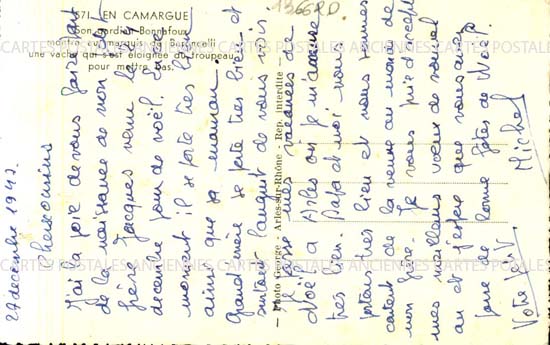 571. EN CAMARGUE
Son gardian Bonnafoux
une vache qui s'est éloignée du troupeau
pour mettre bas.
1366RD
— Photo George - Arles-sur-Rhône - Rep. interdite —
27 décembre 1947
chers cousins
J'ai la joie de vous faire part
de la naissance de mon petit
frère Jacques venu le 24
décembre jour de noël. En ce
moment il se porte très bien
ainsi que sa maman.
Grand'mère se porte très bien et
surtout languit de vous voir
Je passe mes vacances de
Noël à Arles où je m'amuse
très bien. Papa et moi nous
portons très bien et nous sommes
content de la venue au monde de
mon frère. Je vous prie d'accepter
mes meilleurs vœux de nouvel
an et j'espère que vous avez
passé de bonne fêtes de Noël.
Michel
CARTES POSTALES ANCIENNES CARTES POSTALES ANCIENNES CARTES POSTALES